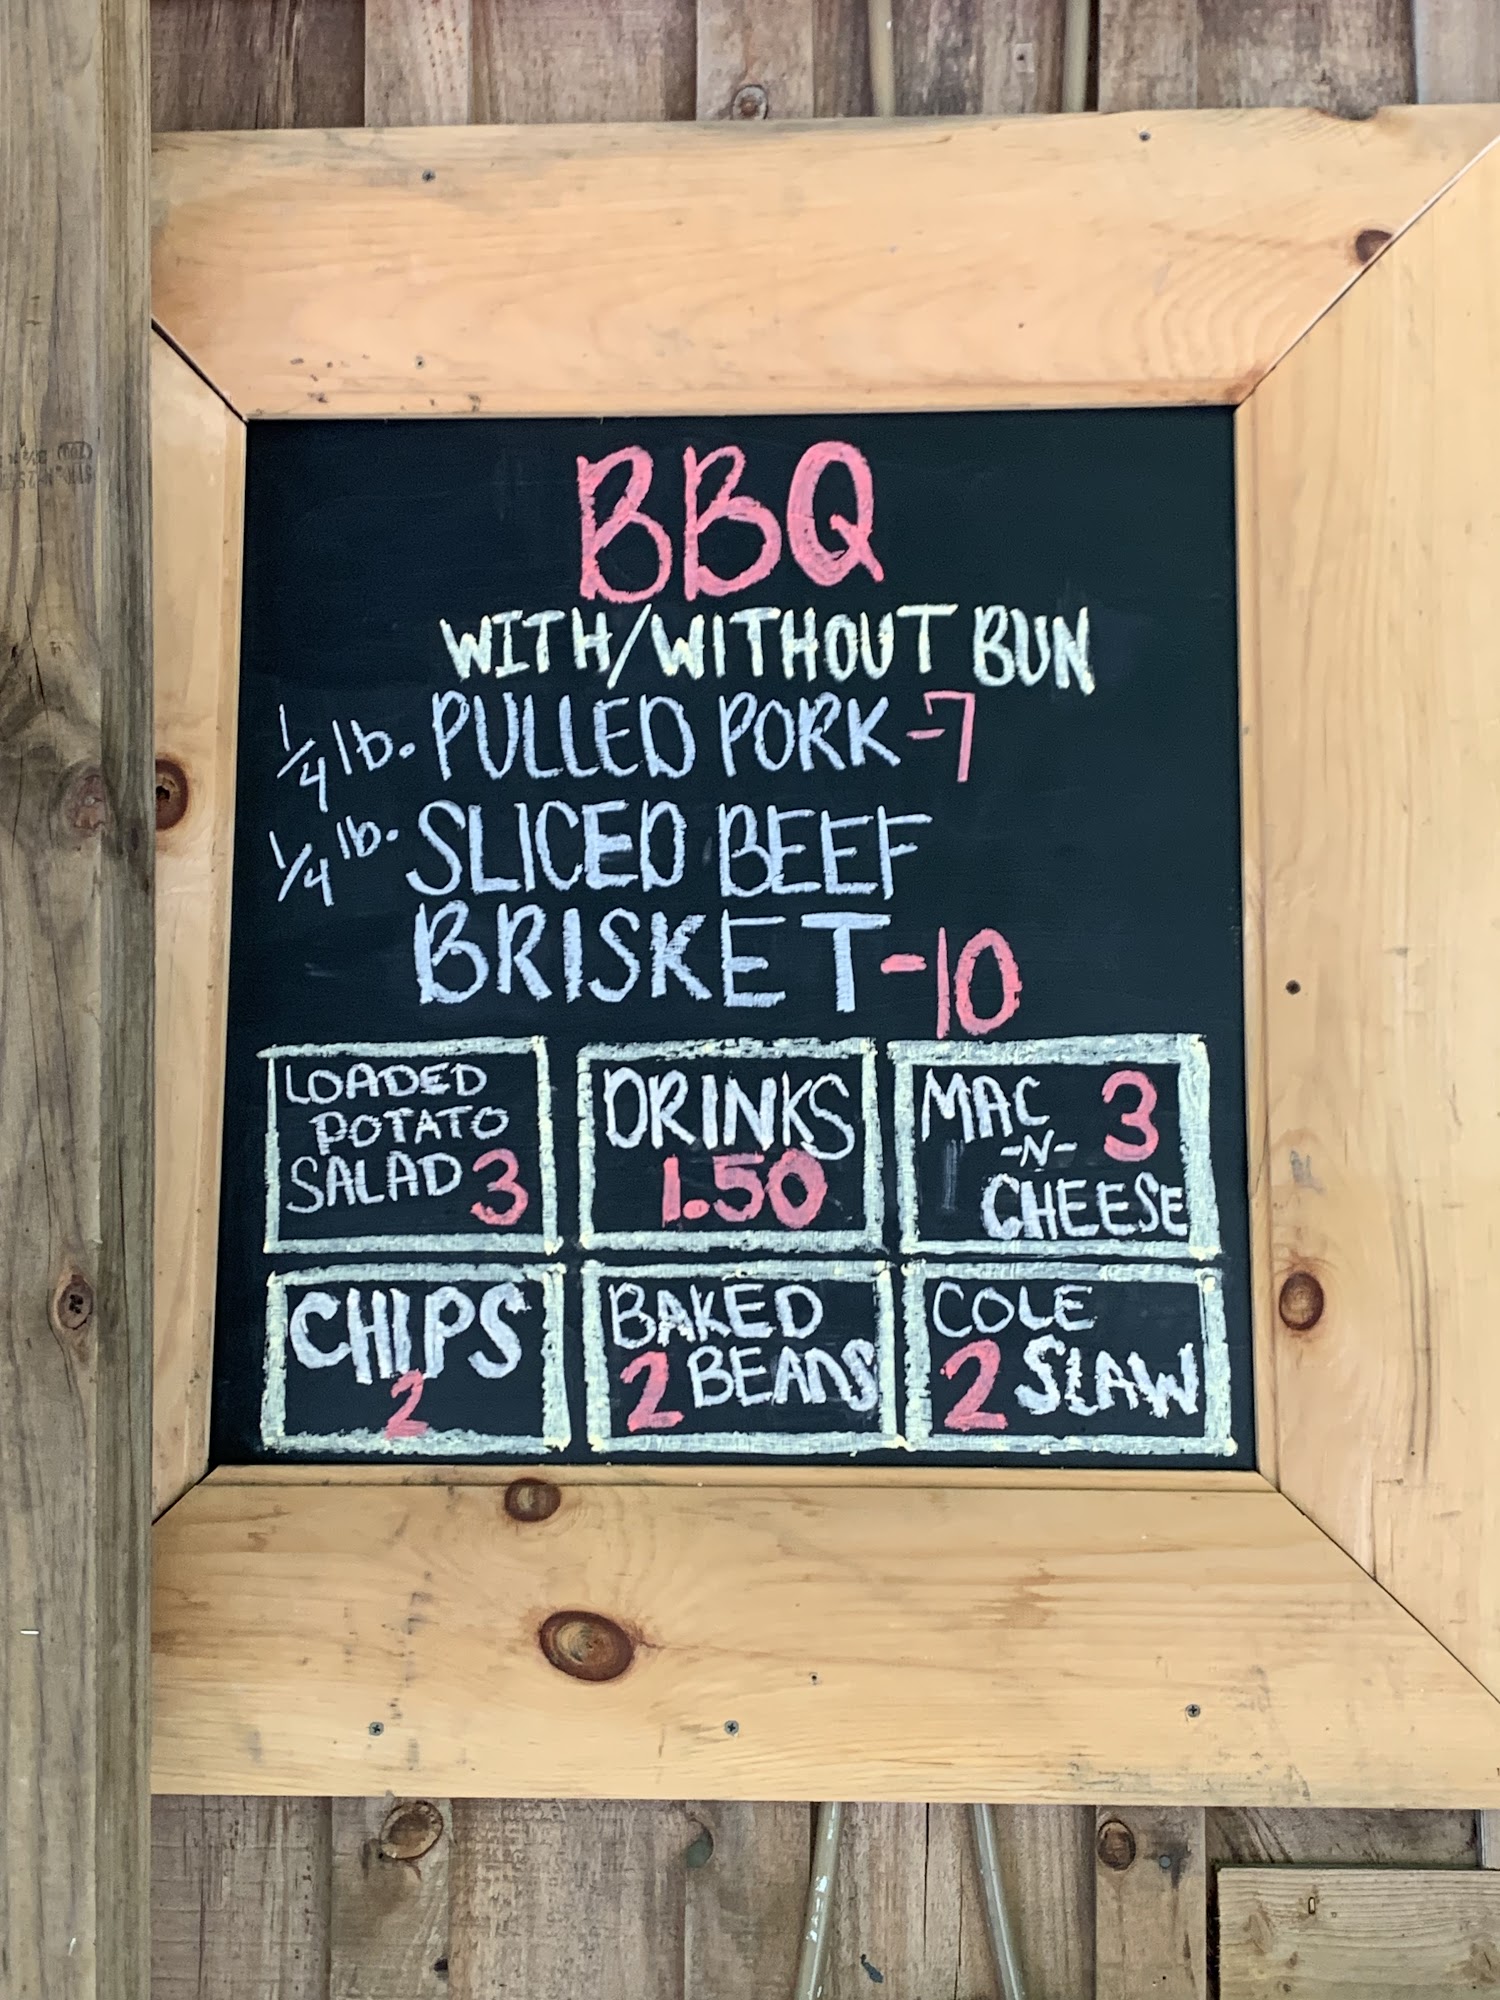 BBQ
WITH/WITHOUT BUN
1/4 lb. PULLED PORK -7
1/4 lb. SLICED BEEF
BRISKET -10
LOADED
POTATO
SALAD 3
DRINKS
1.50
MAC 3
-N-
CHEESE
CHIPS
2
BAKED
2 BEANS
COLE
2 SLAW